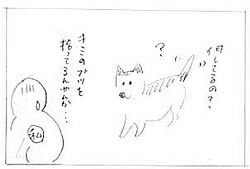 何してるの？
？
キミのフンを
拾ってるんやんか…
私